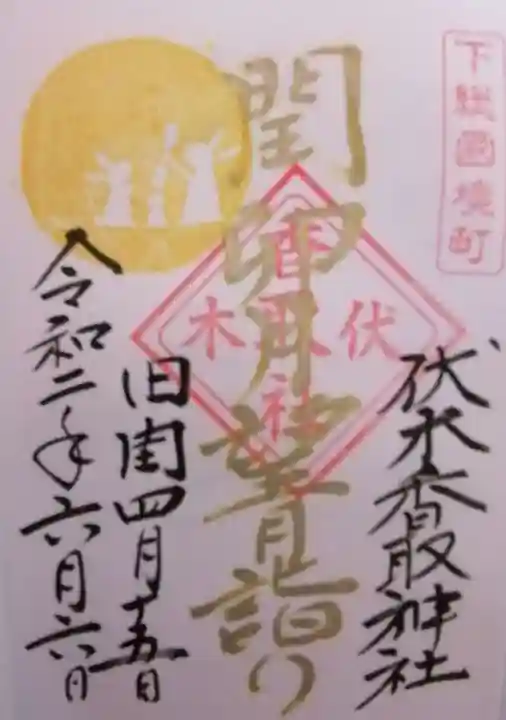 下総國境町
伏木香取神社
伏木
香取社
閏卯月望月詣り
旧閏四月十五日
令和二年六月六日